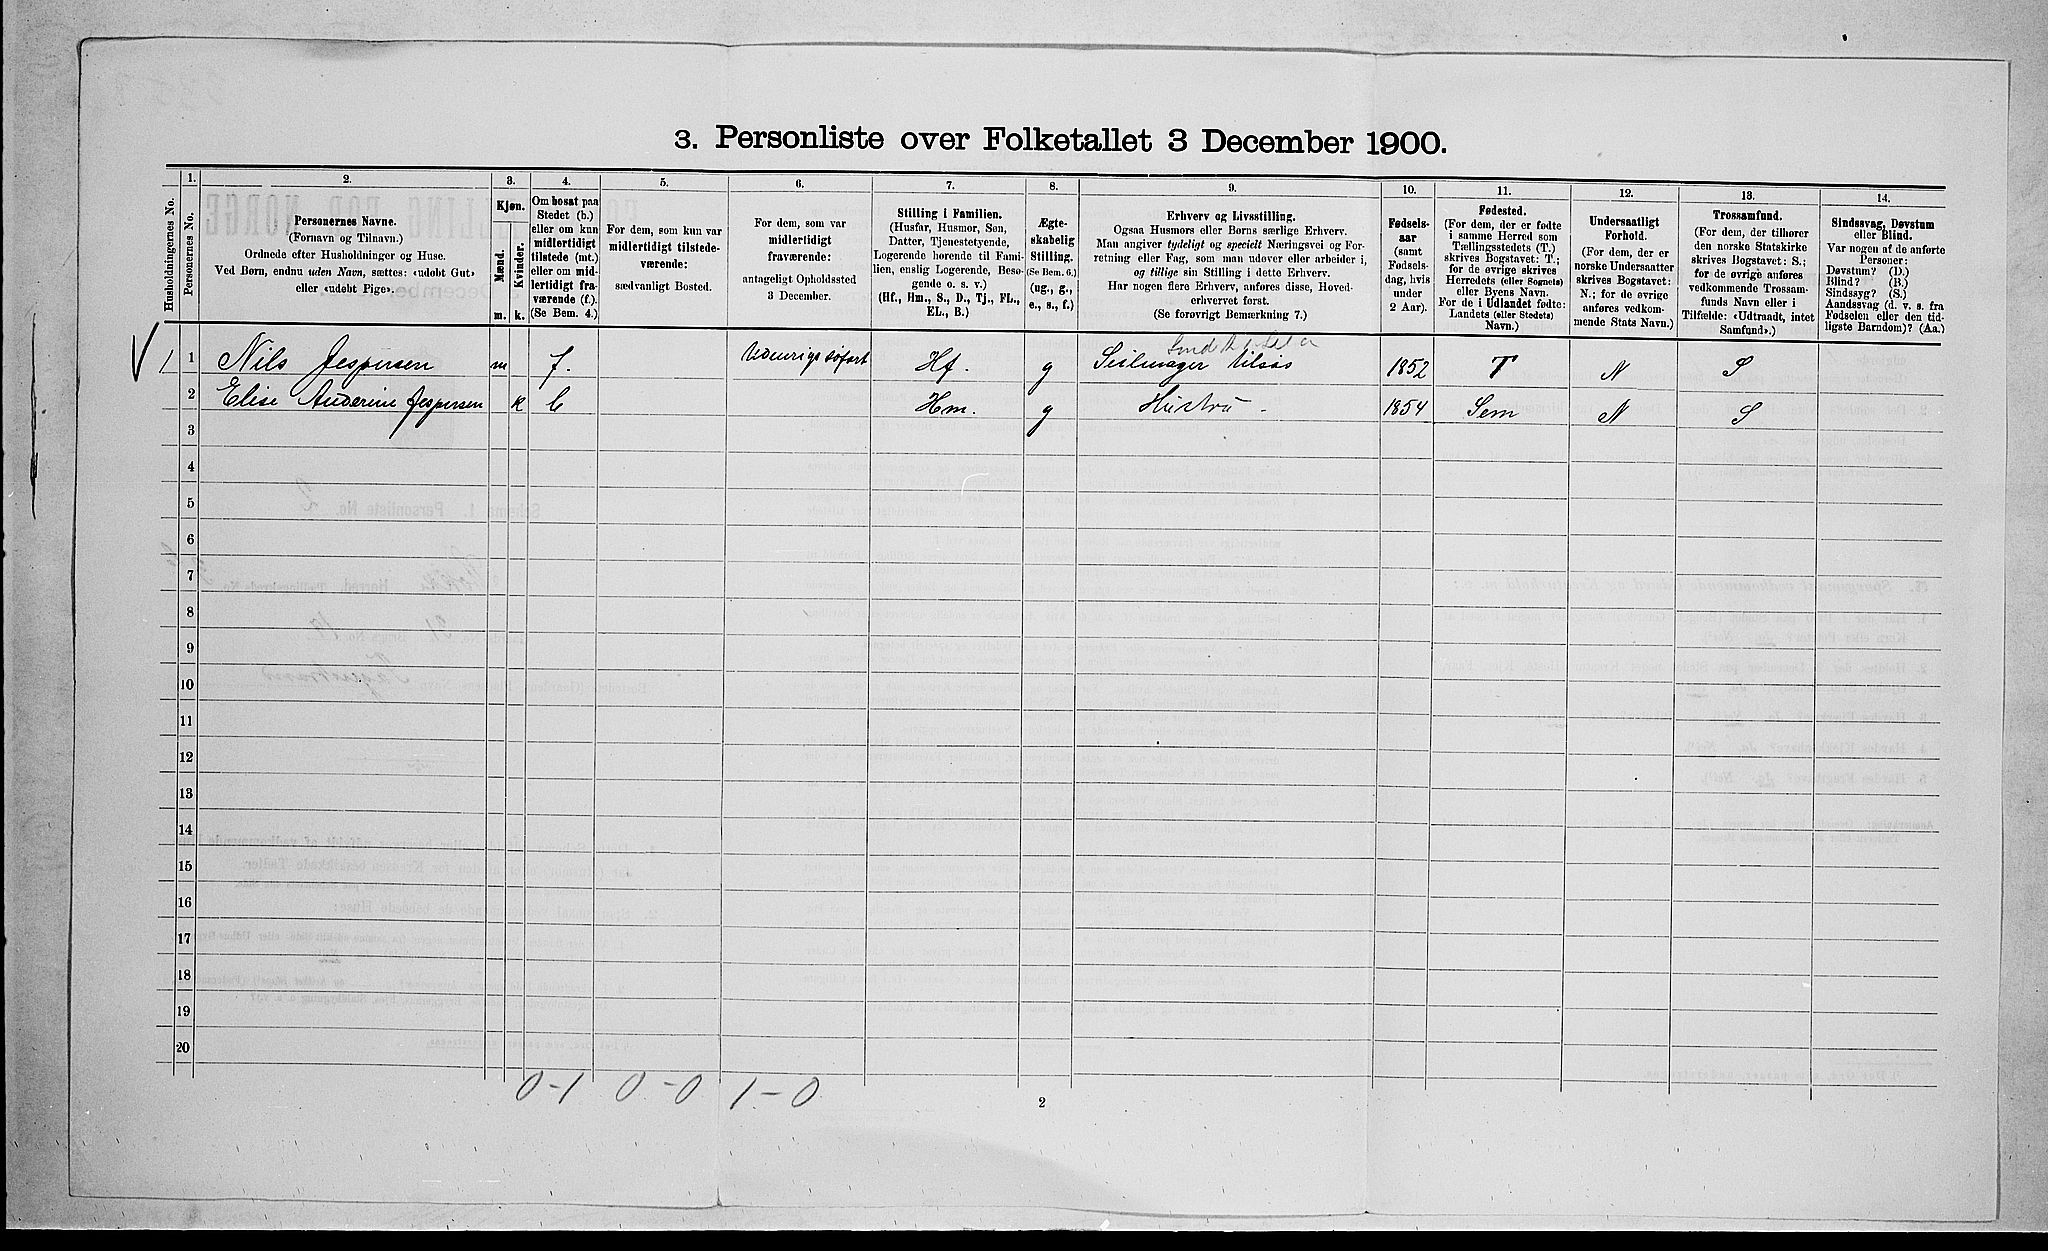 3. Personliste over Folketallet 3 December 1900.
Husholdningernes No.
1.
Personernes No.
2.
Personernes Navne.
(Fornavn og Tilnavn.)
Ordnede efter Husholdninger og Huse.
Ved Børn, endnu uden Navn, sættes: «udøbt Gut»
eller «udøbt Pige».
3.
Kjøn.
Mænd.
Kvinder.
m. k.
4.
Om bosat paa
Stedet (b.)
eller om kun
midlertidigt
tilstede (mt.)
eller om mid-
lertidigt fra-
værende (f.).
(Se Bem. 4.)
5.
For dem, som kun var
midlertidigt tilstede-
værende:
sædvanligt Bosted.
6.
For dem, som var
midlertidigt
fraværende:
antageligt Opholdssted
3 December.
7.
Stilling i Familien.
(Husfar, Husmor, Søn,
Datter, Tjenestetyende,
Logerende hørende til Fami-
lien, enslig Logerende, Besø-
gende o. s. v.)
(Hf., Hm., S., D., Tj., FL.,
EL., B.)
8.
Ægte-
skabelig
Stilling.
(Se Bem. 6.)
(ug., g.,
e., s., f.)
9.
Erhverv og Livsstilling.
Ogsaa Husmors eller Børns særlige Erhverv.
Man angiver tydeligt og specielt Næringsvei og For-
retning eller Fag, som man udover eller arbeider i,
og tillige sin Stilling i dette Erhverv.
Har nogen flere Erhverv, anføres disse, Hoved-
erhvervet først.
(Se forøvrigt Bemærkning 7.)
10.
Fødsels-
aar
(samt
Fødsels-
dag, hvis
under
2 Aar).
11.
Fødested.
(For dem, der er fødte
i samme Herred som
Tællingsstedets (T.)
skrives Bogstavet: T.;
for de øvrige skrives
Herredets (eller Sognets)
eller Byens Navn.
For de i Udlandet fødte:
Landets (eller Stedets)
Navn.)
12.
Undersaatligt
Forhold.
(For dem, der er
norske Undersaatter
skrives Bogstavet:
N.; for de øvrige
anføres vedkom-
mende Stats Navn.)
13.
Trossamfund.
(For dem, der tilhører
den norske Statskirke
skrives Bogstavet: S.;
for de øvrige anføres
vedkommende Trossam-
funds Navn eller i
Tilfælde: «Udtraadt, intet
Samfund».)
14.
Sindssvag, Døvstum
eller Blind.
Var nogen af de anførte
Personer:
Døvstum? (D.)
Blind? (B.)
Sindssyg? (S.)
Aandssvag (d. v. s. fra
Fødselen eller den tid-
ligste Barndom)? (Aa.)
1 1 Nils Jespersen m f. Udenrigs søfart Hf. g Seilmager tilsøs 1852 T N S
2 Elise Anderine Jespersen k b Hm. g Hustru - 1854 Sem N S
3
4
5
6
7
8
9
10
11
12
13
14
15
16
17
18
19
20
0-1 0-0 1-0
2